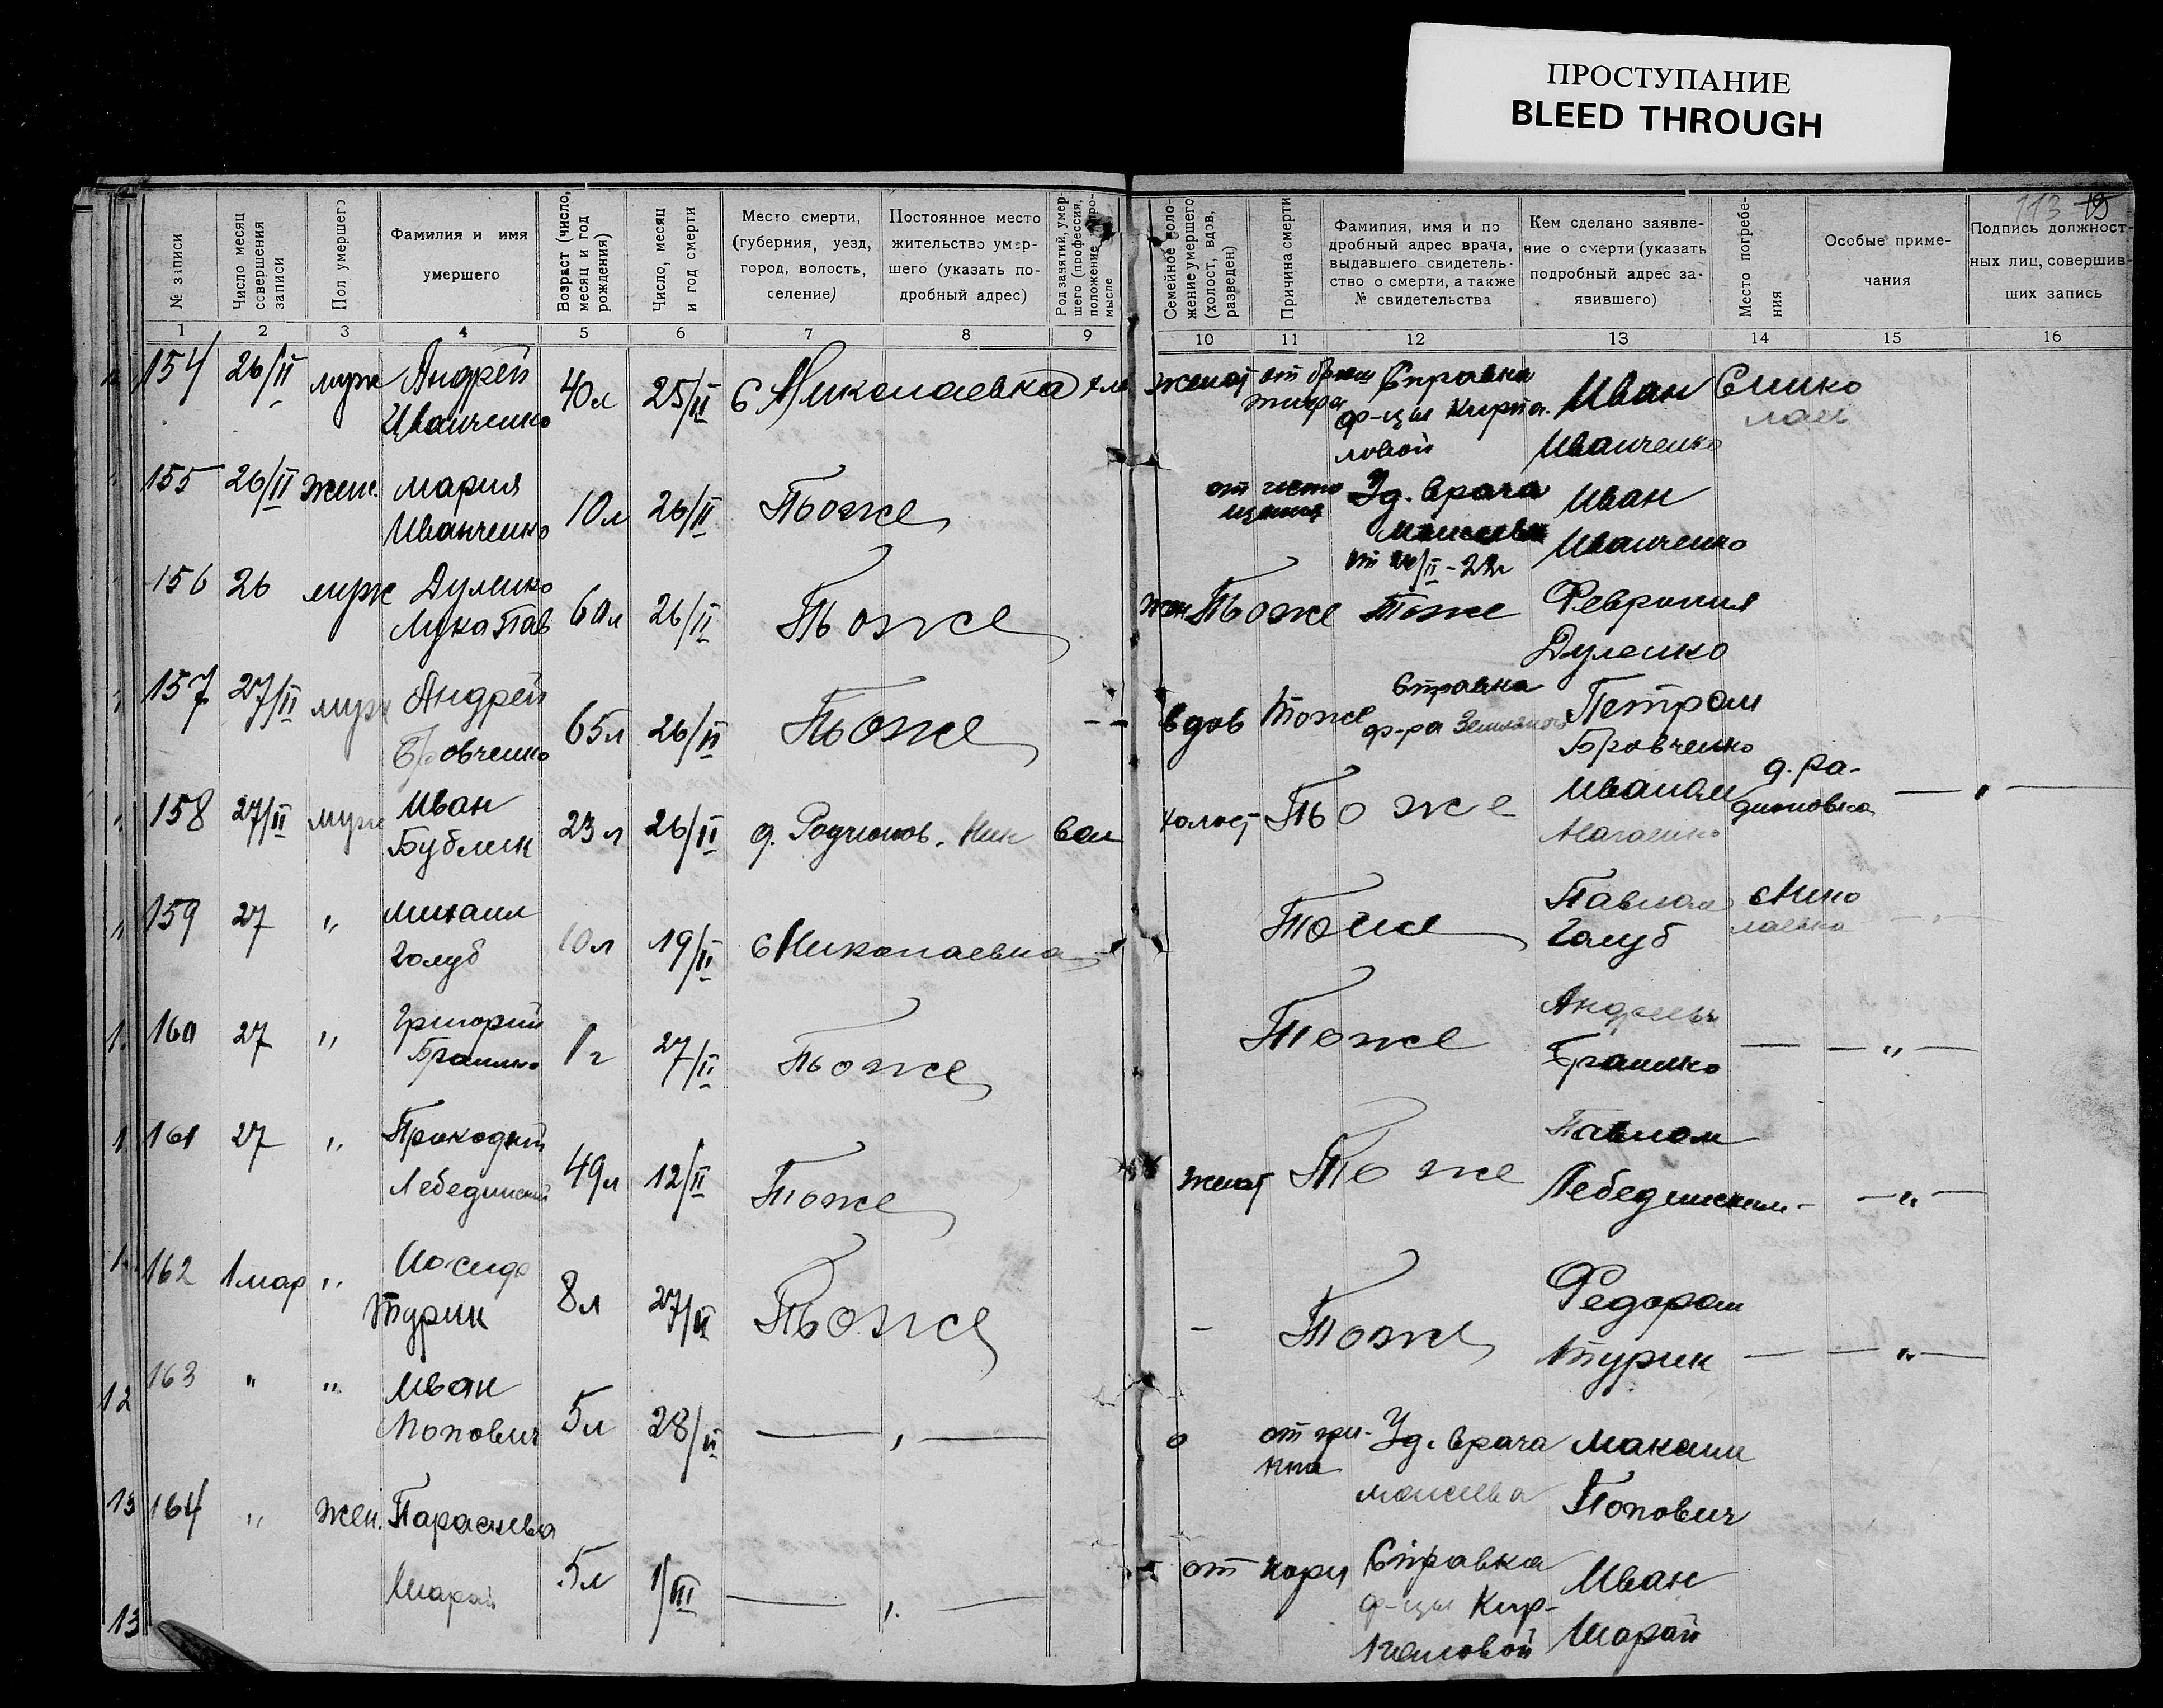 ПРОСТУПАНИЕ
BLEED THROUGH
113 15
№ записи
Число месяц совершения записи
Пол умершего
Фамилия и имя умершего
Возраст (число, месяц и год рождения)
Число, месяц и год смерти
Место смерти, (губерния, уезд, город, волость, селение)
Постоянное место жительство умершего (указать подробный адрес)
Род занятий, умершего (профессия, положение в промысле
Семейное положение умершего (холост, вдов, разведен)
Причина смерти
Фамилия, имя и подробный адрес врача, выдавшего свидетельство о смерти, а также № свидетельства
Кем сделано заявление о смерти (указать подробный адрес заявившего)
Место погребения
Особые примечания
Подпись должностных лиц, совершивших запись
1 2 3 4 5 6 7 8 9 10 11 12 13 14 15 16
154 26/II муж Андрей 40л 25/II с Николаевка женат Справка Иван
Иванченко ф-цы Иванченко
155 26/II жен. Мария 10л 26/II Тьоже от Уд. врача Иван
Иванченко Моисеева Иванченко
II-22г
156 26 муж Дуленко 60л 26/II Тьоже жен Тьоже Тоже Феврония
Лука Пав Дуленко
157 27/II муж Андрей 65л 26/II Тьоже -- вдов Тоже Справка Петром
Бровченко ф-ра Бровченко
158 27/II муж Иван 23л 26/II д. Родионов. Ник вол холост Тьоже Иваном д. Ра-
Бублик дионовка — " —
159 27 " Михаил 10л 19/II с Николаевка Тоже Павлом с Нико
Голуб Голуб лаевка
160 27 " Григорий 1г 27/II Тьоже Тоже Андреем — — " —
161 27 " Прокофий 49л 12/II Тоже женат Тоже Павлом
Лебединский Лебединским — " —
162 1 мар " Иосиф 8л 27/II Тьоже - Тоже Федором
Турик Турик — — " —
163 " " Иван 5л 28/II — " — Уд. врача Максим
Попович Моисеева Попович
12
13 164 " жен. Параскева 5л 1/III — " — от кори Справка Иван
Шарай ф-цы Кир- Шарай
13